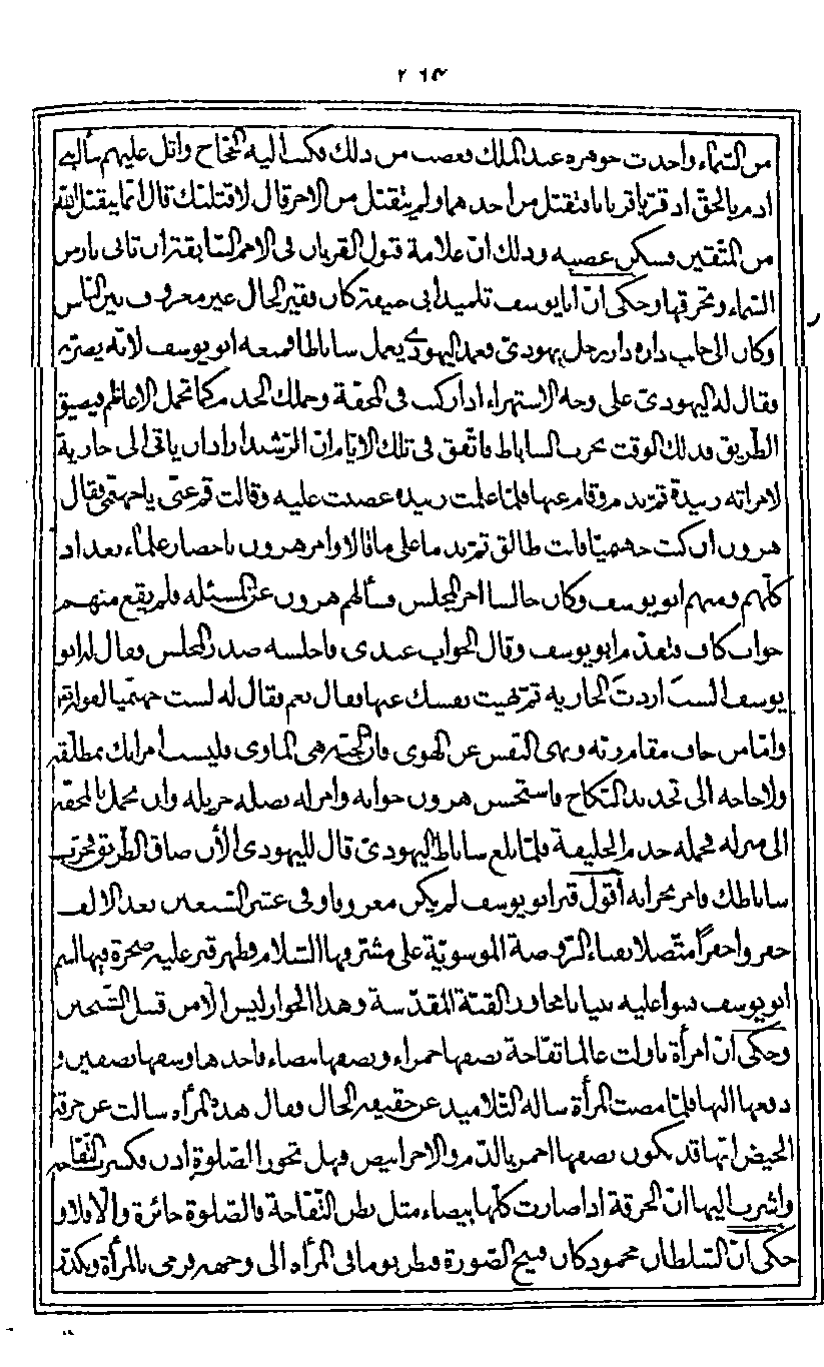 ٢٦٤
من السماء واخذت جوهره عبد الملك فغضب من ذلك فكتب اليه الحجاج واتل عليهم نبأ ابنى
ادم بالحق اذ قربا قربانا فتقبل من احدهما ولم يتقبل من الاخر قال لاقتلنك قال انما يتقبل الله
من المتقين فسكن غضبه وذلك ان علامة قبول القربان فى الامم السابقة ان تاتى نار من
السماء وتحرقها وحكى ان ابا يوسف تلميذ ابى حنيفة كان فقير الحال غير معروف بين الناس
وكان الى جانب داره دار رجل يهودى فعمد اليهودى يعمل ساباطا فمنعه ابو يوسف لانه يضر به
فقال له اليهودى على وجه الاستهزاء اذا ركبت فى المحفة وحملك الخدم كما تحمل الاعاظم فيضيق
الطريق فذلك الوقت نخرب الساباط فاتفق فى تلك الايام ان الرشيد اراد ان ياتى الى جارية
لامراته زبيدة ثم ندم وقام عنها فلما علمت زبيده غضبت عليه وقالت قم عنى يا جهنمى فقال
هرون ان كنت جهنميا فانت طالق ثم ندما على ما قالا وامر هرون باحضار علماء بغداد
كلهم ومنهم ابو يوسف وكان جالسا اخر المجلس فسألهم هرون عن المسئله فلم يقع منهم
جواب كاف فتقدم ابو يوسف وقال الجواب عندى فاجلسه صدر المجلس فقال له ابو
يوسف الست اردت الجاريه ثم نهيت نفسك عنها فقال نعم فقال له لست جهنميا لقوله تعالى
وامّا من خاف مقام ربه ونهى النفس عن الهوى فان الجنة هى الماوى فليست امراتك بمطلقه
ولا حاجه الى تجديد النكاح فاستحسن هرون جوابه وامر له بصله جزيله وان يحمل بالمحفه
الى منزله فحمله خدم الخليفة فلما بلغ ساباط اليهودى قال لليهودى الأن ضاق الطريق فخرب
ساباطك فامر بخرابه اقول قبر ابو يوسف لم يكن معروفا وفى عشر التسعين بعد الالف
حفروا حفراً متصلا بفناء الروضة الموسويّة على مشرفها السلام فظهر قبر عليه صخرة فيها اسم
ابو يوسف فبنوا عليه بنيانا مجاور القبة المقدسة وهذا الجوار ليس الّا من قبل الشيخين
وحكى ان امرأة ناولت عالما تفاحة نصفها حمراء ونصفها بيضاء فاخذها وسفها نصفين و
دفعها اليها فلما مضت المرأة ساله التلاميذ عن حقيقه الحال فقال هذه المرأه سالت عن خرقة
الحيض انها قد يكون نصفها احمر بالدم والاخر ابيض فهل تجوز الصلوة اذن فكسرت التفاحه
واشرت اليها ان الخرقة اذا صارت كلها بيضاء مثل بطن التفاحة فالصلوة جائزة والّا فلا و
حكى ان السلطان محمود كان قبيح الصورة فنظر يوما فى المرأه الى وجهه فرمى بالمرأة وتكدر